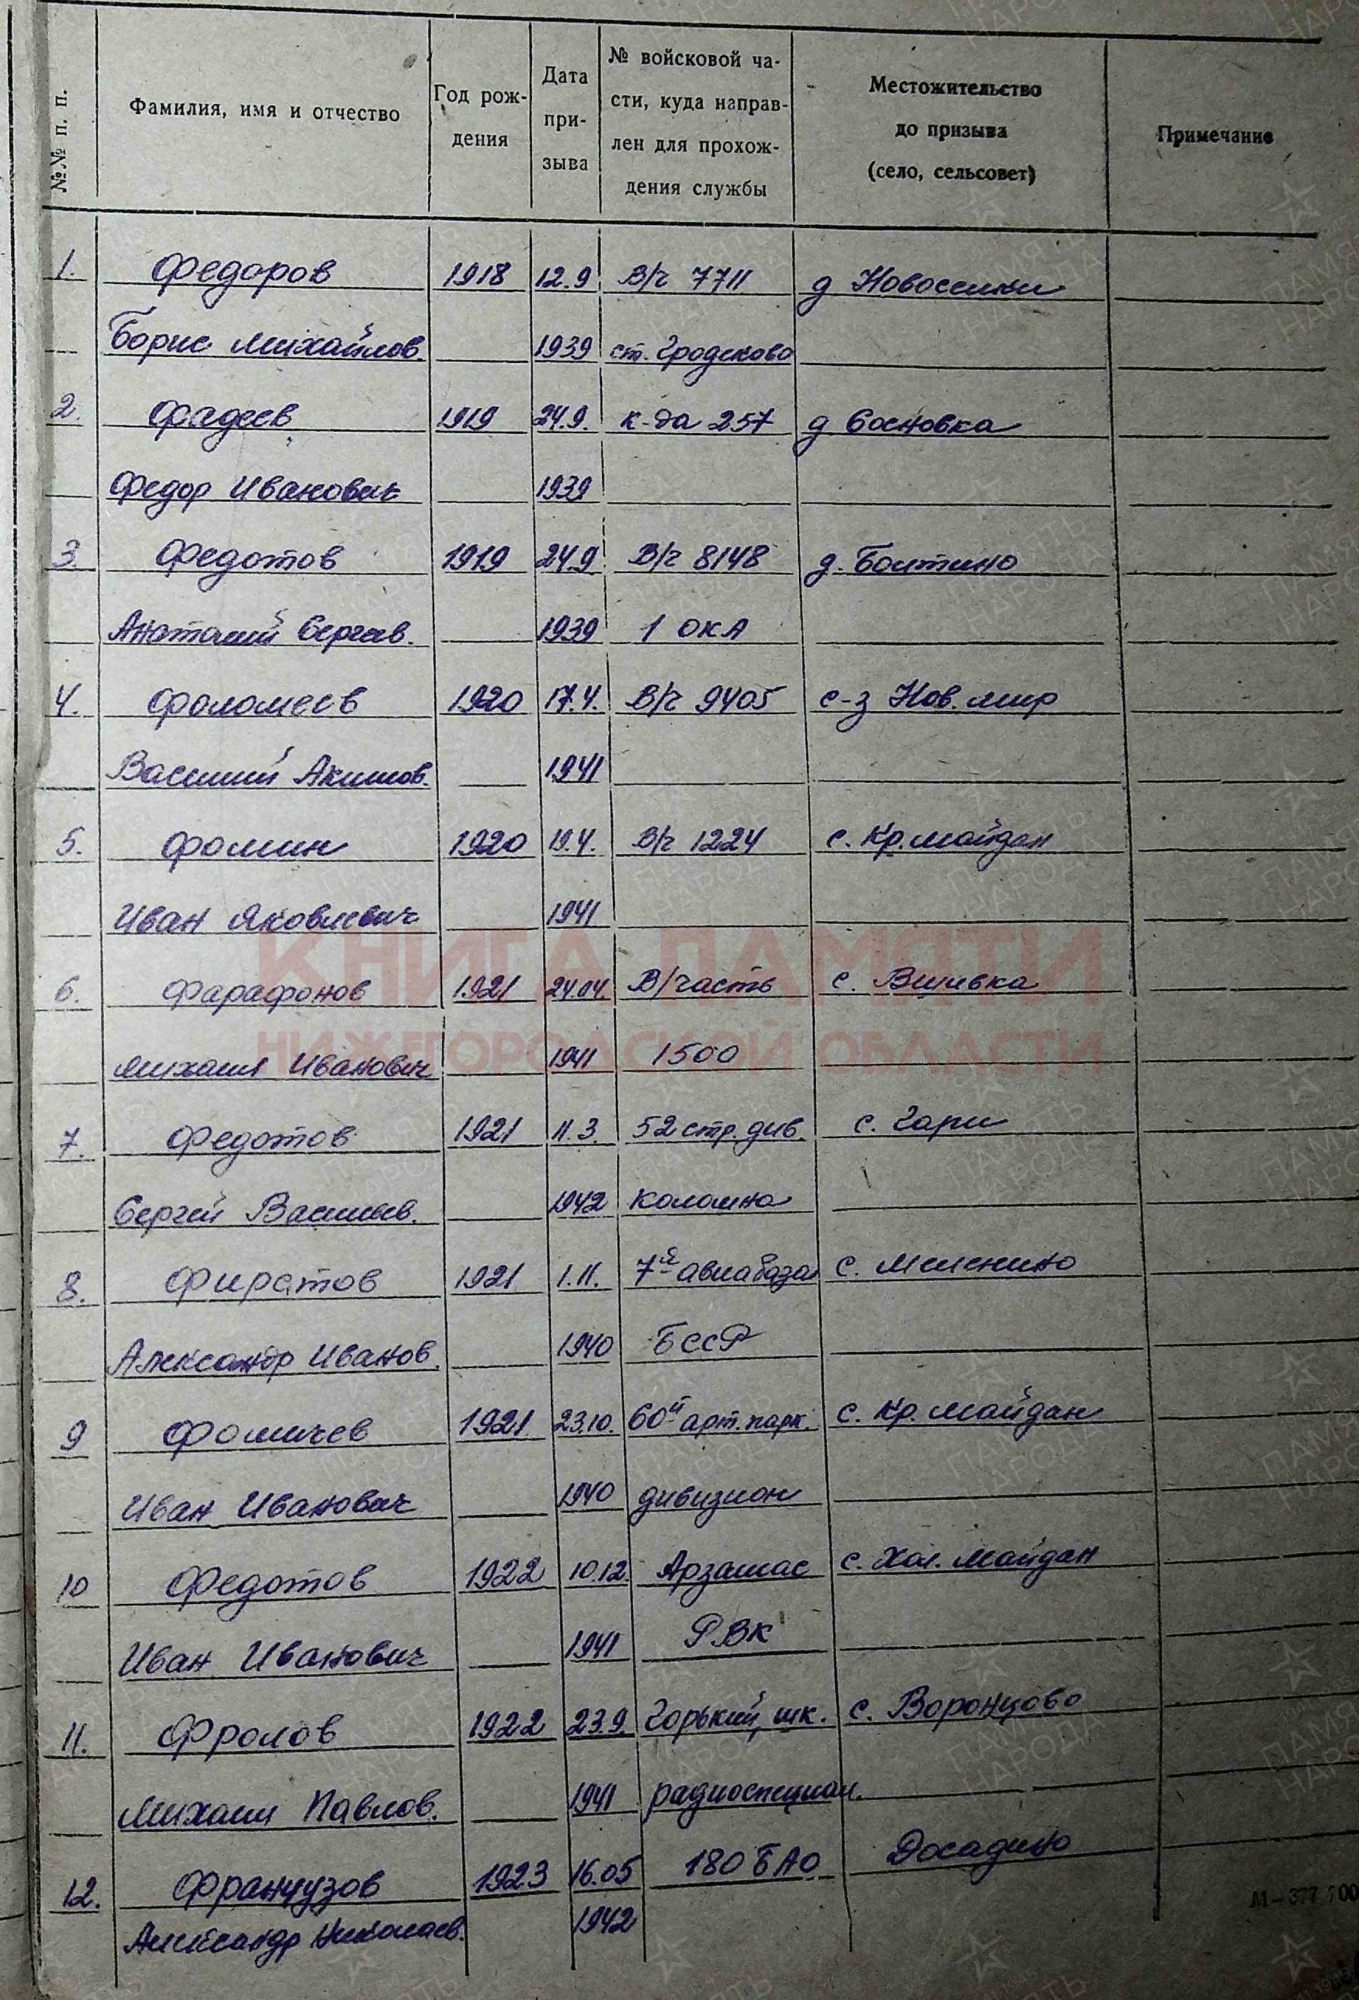 №№ п. п. Фамилия, имя и отчество Год рождения Дата призыва № войсковой части, куда направлен для прохождения службы Местожительство до призыва (село, сельсовет) Примечание
1. Федоров 1918 12.9 В/ч 7711 д Новоселки
Борис Михайлов. 1939 ст. Гродеково
2. Фадеев 1919 24.9. к-да 257 д Сосновка
Федор Иванович 1939
3. Федотов 1919 24.9. В/ч 8148 д. Болтино
Анатолий Сергеев. 1939 1 ОКА
4. Фоломеев 1920 17.4. В/ч 9405 с-з Нов. мир
Василий Акимов. 1941
5. Фомин 1920 19.4. В/ч 1224 с. Кр. Майдан
Иван Яковлевич 1941
КНИГА ПАМЯТИ
6. Фарафонов 1921 24.04. В/часть с.
НИЖЕГОРОДСКОЙ ОБЛАСТИ
Михаил Иванович 1941 1500
7. Федотов 1921 11.3 52 стр. див. с. Гари
Сергей Васильев. 1942 Коломна
8. Фирстов 1921 1.11. 7й авиабаза с. Меленино
Александр Иванов. 1940 БССР
9 Фомичев 1921 23.10. 60й арт. парк. с. Кр. Майдан
Иван Иванович 1940 дивизион
10 Федотов 1922 10.12. Арзамас с. Хол. Майдан
Иван Иванович 1941 РВК
11. Фролов 1922 23.9 Горький, шк. с. Воронцово
Михаил Павлов. 1941 радиоспециал.
12. Французов 1923 16.05 180 БАО Досадино
М—377 700
Александр Николаев. 1942